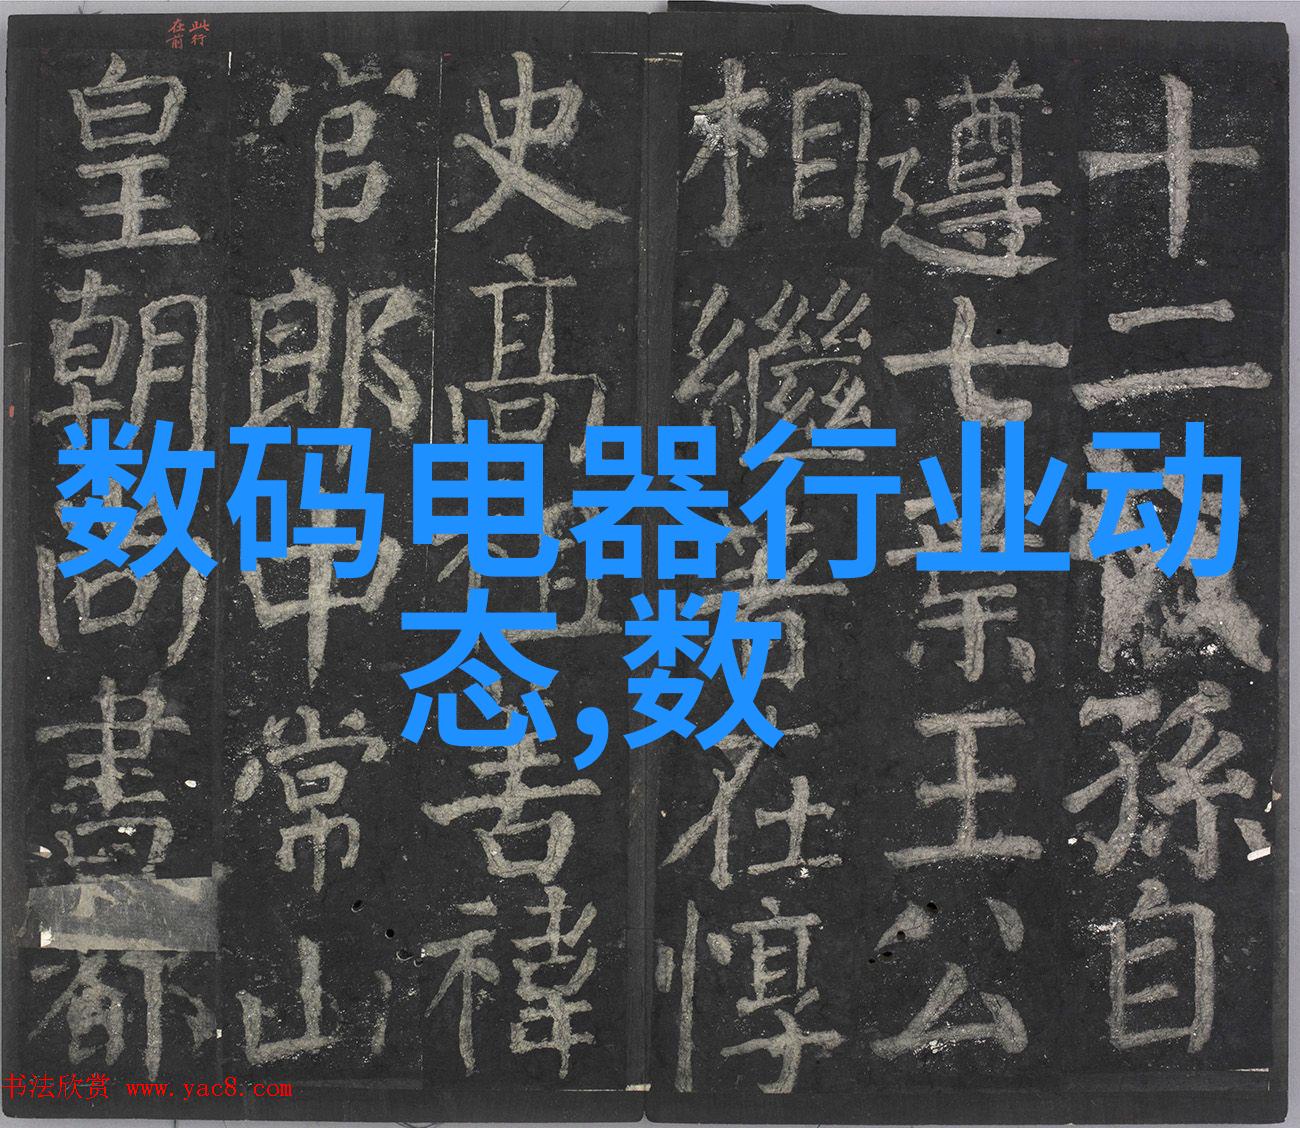 十二孫自
遵七葉王公
相繼著在惇
史高祖禕
官郎中常山
皇朝尚書都
此行
在前
数码电器行业动
态,数
书法欣赏 www.yac8.com